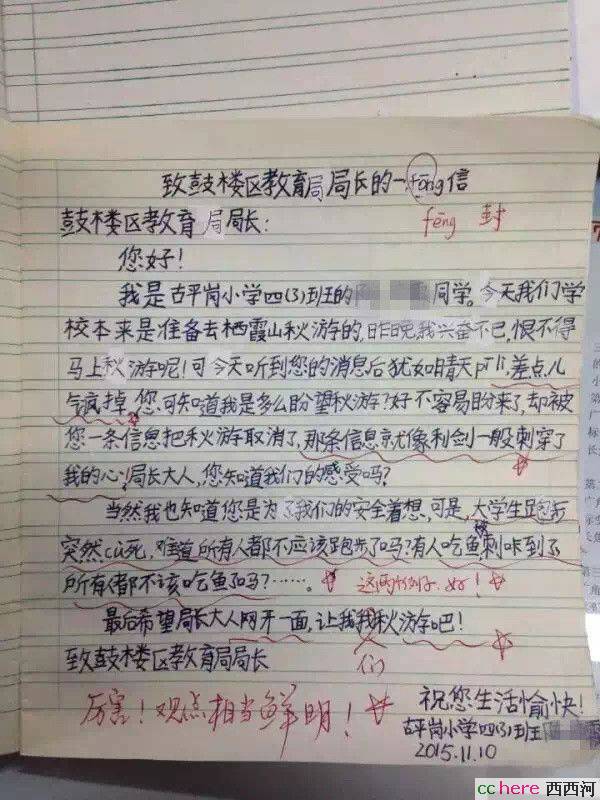 致鼓楼区教育局局长的一fōng信
fēng 封
鼓楼区教育局局长:
您好!
我是古平岗小学四(3)班的 同学。今天我们学
校本来是准备去栖霞山秋游的,昨晚,我兴奋不已,恨不得
马上秋游呢!可今天听到您的消息后犹如晴天pī lì,差点儿
气疯掉。您可知道我是多么盼望秋游?好不容易盼来了,却被
您一条信息把秋游取消了,那条信息就像利剑一般刺穿了
我的心!局长大人,您知道我们的感受吗?
当然我也知道您是为了我们的安全着想,可是,大学生跑步
突然cù死,难道所有人都不应该跑步了吗?有人吃鱼刺咔到了
所有人都不该吃鱼了吗?……。 这两个例子好!
最后希望局长大人网开一面,让我我秋游吧!
们
致鼓楼区教育局局长
厉害!观点相当鲜明!
祝您生活愉快!
古平岗小学四(3)班
2015.11.10
cchere 西西河